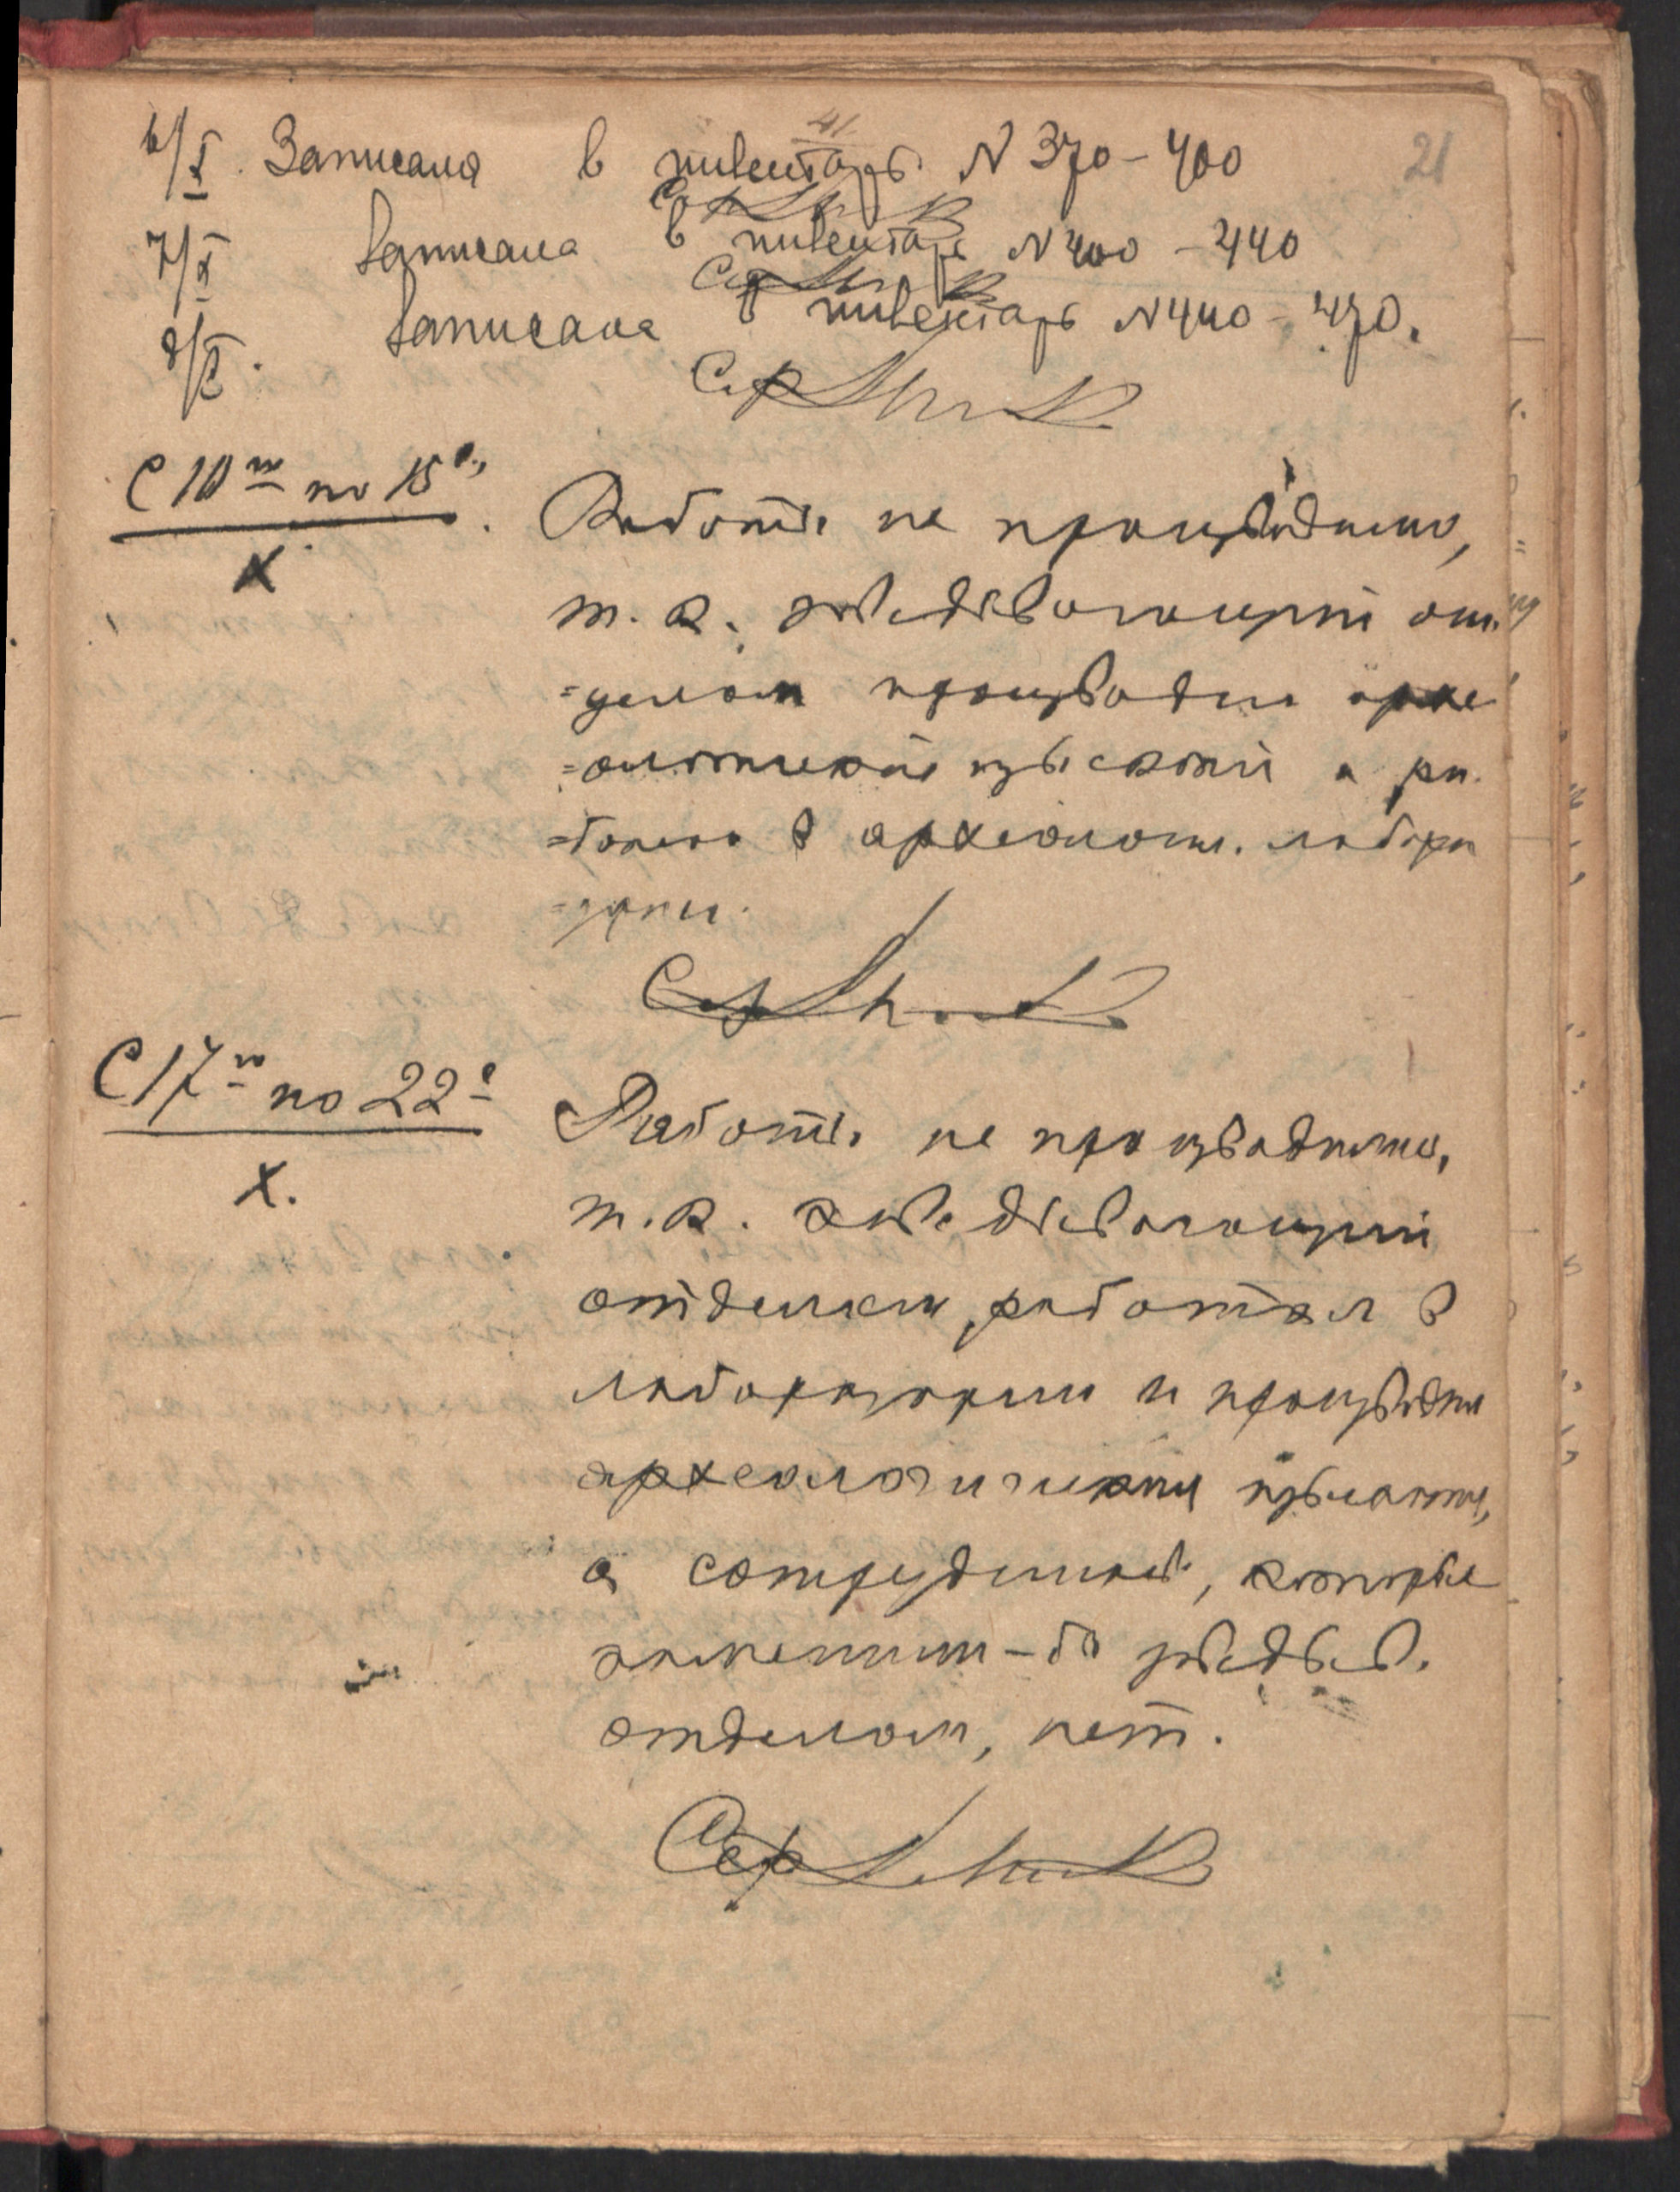 41
21
6/X. Записала в инвентарь N 370-400
7/X Записала в инвентарь N 400-440
8/X. Записала в инвентарь N 440-470.
С 10го по 15е
X
Работы не производились,
т. к. заведывающий от-
=делом производил архе
=ологические изыскания и ра-
=ботал в археологич. лабора
=тории.
С 17го по 22е
X.
Работы не производились,
т. к. заведывающий
отделом работал в
лаборатории и производил
археологические изыскания,
а сотрудников, которые
заменили-бы заведыв.
отделом, нет.